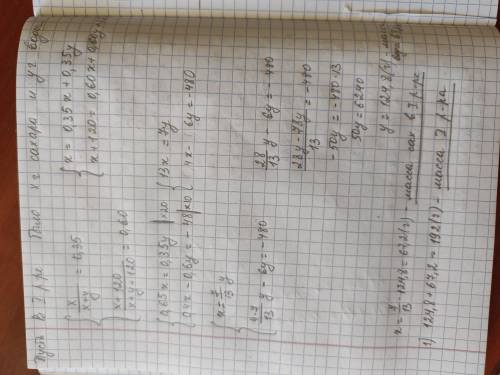 Пусть в I р-ре было x г сахара и y г воды
{ x/(x+y) = 0,35
{ (x+120)/(x+y+120) = 0,60
{ x = 0,35x + 0,35y
{ x+120 = 0,60x + 0,60y +
{ 0,65x = 0,35y |×20
{ 0,4x - 0,6y = -48 |×10
{ 13x = 7y
{ 4x - 6y = -480
{ x = 7/13 y
{ 4·7/13 y - 6y = -480
28/13 y - 6y = -480
(28y - 78y)/13 = -480
-50y = -480·13
50y = 6240
y = 124,8 (г) - масса воды в I р.
x = 7/13 · 124,8 = 67,2 (г) - масса сах в I р-ре
1) 124,8 + 67,2 = 192 (г) - масса I р-ра